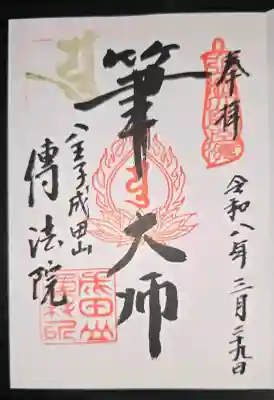 奉拝
令和八年三月二十九日
筆大師
八王子成田山
傳法院